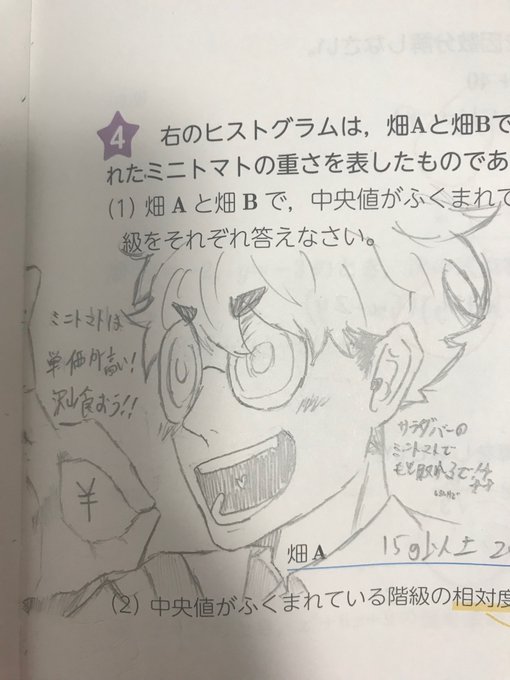 4 右のヒストグラムは，畑Aと畑Bで
れたミニトマトの重さを表したものであ
(1) 畑Aと畑Bで，中央値がふくまれて
級をそれぞれ答えなさい。
ミニトマトは
単価が高い!
沢山食おう!!
サラダバーの
ミニトマトで
もと取れるで
¥
畑A 15g以上 2
(2) 中央値がふくまれている階級の相対度